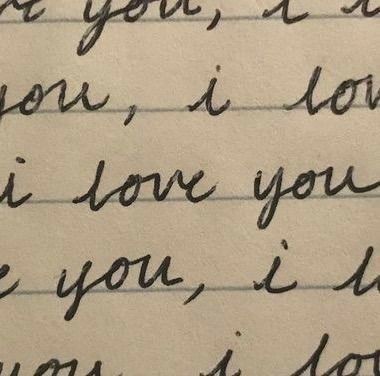 ve you, i
you, i lov
i love you
e you, i l
you i lov